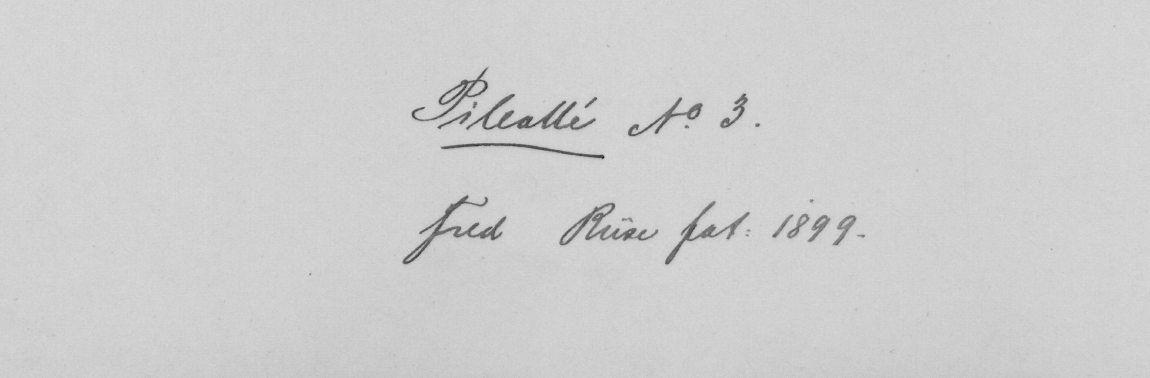 Pileallé No. 3.
Fred Riise fot: 1899.